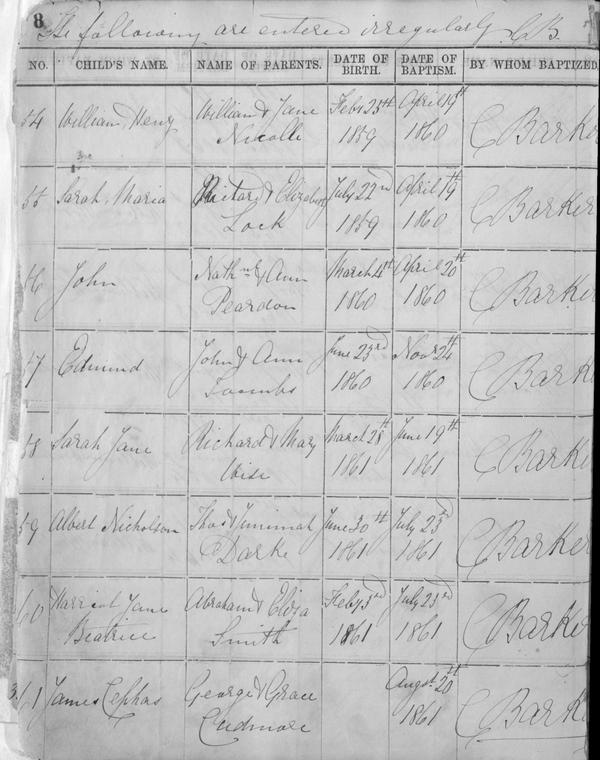 8
The following are entered irregularly CB.
NO. CHILD'S NAME. NAME OF PARENTS. DATE OF BIRTH. DATE OF BAPTISM. BY WHOM BAPTIZED
54 William Henry William & Jane Nicolle Feby 25th 1859 April 19th 1860 C Barker
55 Sarah Maria & Elizabeth Lock July 22nd 1859 April 19th 1860 C Barker
56 John Nathnl & Ann Peardon March 4th 1860 April 20th 1860 C Barker
57 Edmund John & Ann Toombs June 23rd 1860 Novr 24th 1860 C Barker
58 Sarah Jane Richard & Mary Wise March 28th 1861 June 19th 1861 C Barker
59 Albert Nicholson Thos & Jemimah Darke June 30th 1861 July 23rd 1861 C Barker
60 Harriet Jane Beatrice Abraham & Eliza Smith Feby 3rd 1861 July 23rd 1861 C Barker
61 James Cephas George & Grace Cudmore Augst 20th 1861 C Barker